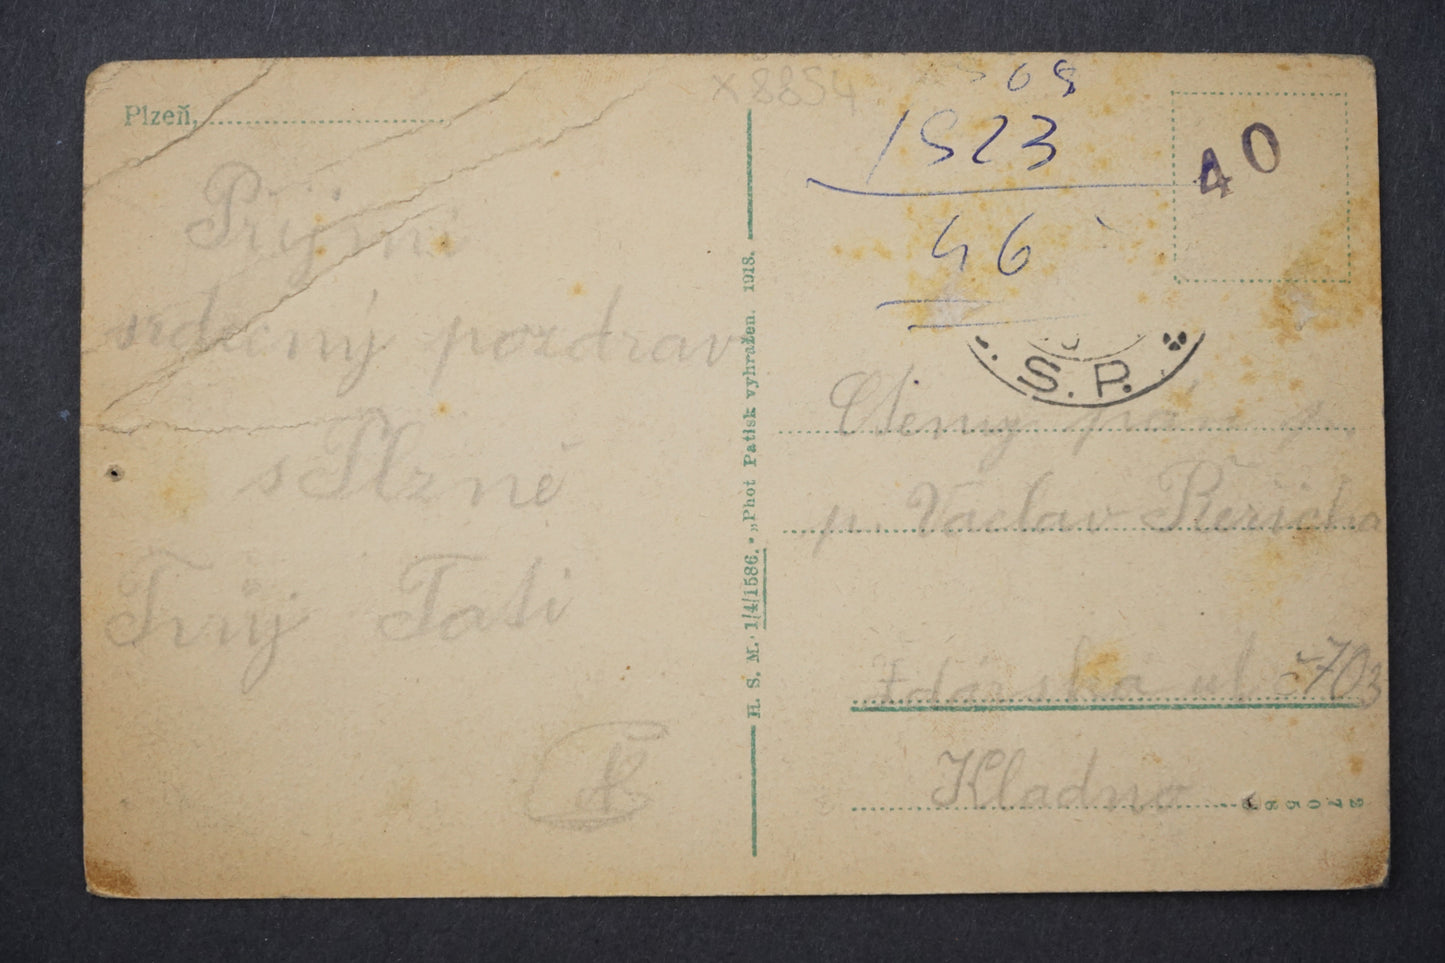 Plzeň,
X 8854
08
1923
46
40
S. P.
Přijmi
srdečný pozdrav
s Plzně
Tvůj Tati
H. S. M. 1/4/1586. "Phot Patisk vyhražen. 1918.
Ctěný pán
p. Václav Řeřicha
Ždárská ul č 703
Kladno
27058